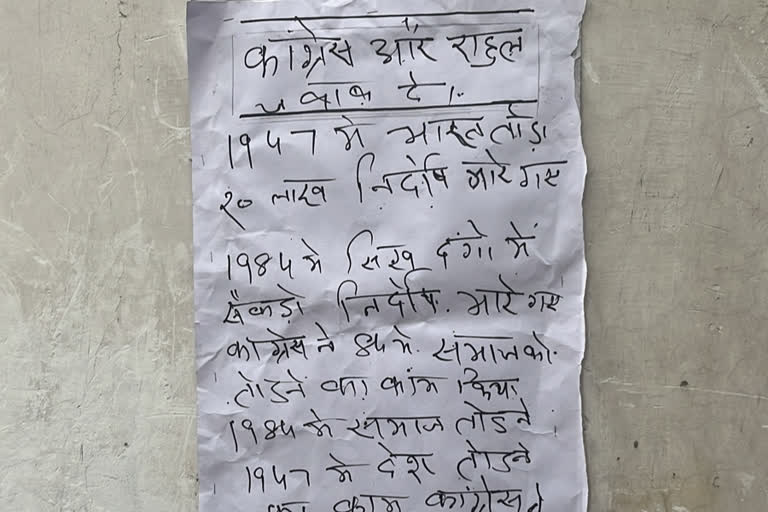 कांग्रेस और राहुल
जवाब दे।
१९४७ मे भारत तोड़ा
१० लाख निर्दोष मारे गए
१९84 मे सिख दंगो में
सैकड़ो निर्दोष. मारे गए
कांग्रेस ने 84 मे. समाज को.
तोडने का काम किया
१९84 मे समाज तोडने
१९४७ मे देश तोडने
का काम कांग्रेस ने